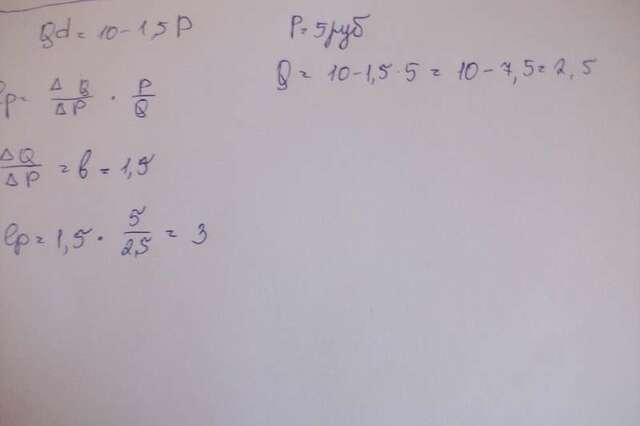 Qd = 10 - 1,5 P
P = 5 руб
Q = 10 - 1,5 · 5 = 10 - 7,5 = 2,5
p = ΔQ/ΔP · P/Q
ΔQ/ΔP = b = 1,5
ep = 1,5 · 5/2,5 = 3